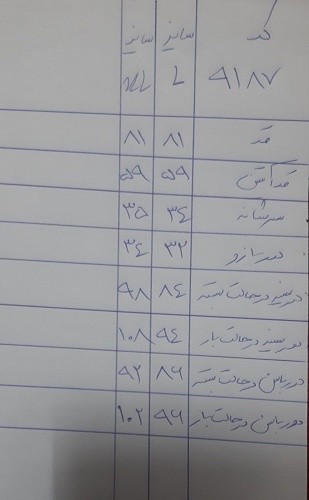 کد سایز سایز
۹۱۸۷ L XL
قد ۸۱ ۸۱
قد آستین ۵۹ ۵۹
سرشانه ۳۴ ۳۵
دور بازو ۳۲ ۳۴
دور سینه در حالت بسته ۸۴ ۹۸
دور سینه در حالت باز ۹۴ ۱۰۸
دور باسن در حالت بسته ۸۶ ۹۲
دور باسن در حالت باز ۹۶ ۱۰۲